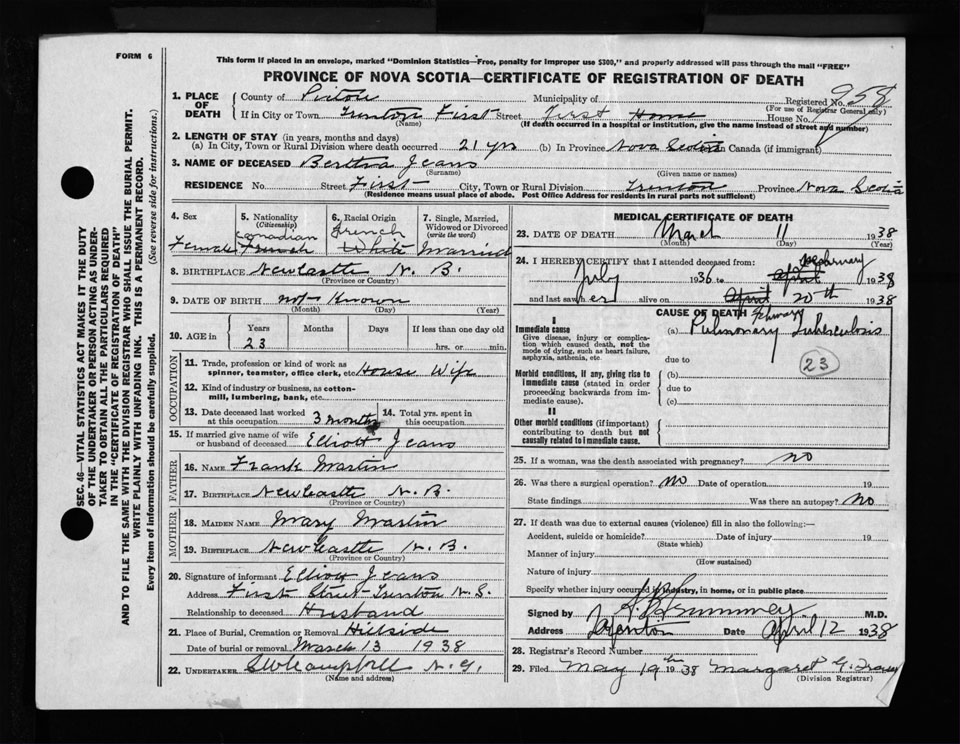 FORM 6
This form if placed in an envelope, marked "Dominion Statistics—Free, penalty for improper use $300," and properly addressed will pass through the mail "FREE"
PROVINCE OF NOVA SCOTIA—CERTIFICATE OF REGISTRATION OF DEATH
SEC. 46—VITAL STATISTICS ACT MAKES IT THE DUTY
OF THE UNDERTAKER OR PERSON ACTING AS UNDER-
TAKER TO OBTAIN ALL THE PARTICULARS REQUIRED
IN THE "CERTIFICATE OF REGISTRATION OF DEATH"
AND TO FILE THE SAME WITH THE DIVISION REGISTRAR WHO SHALL ISSUE THE BURIAL PERMIT.
WRITE PLAINLY WITH UNFADING INK. THIS IS A PERMANENT RECORD.
Every item of information should be carefully supplied. (See reverse side for instructions.)
1. PLACE OF DEATH County of Pictou Municipality of Registered No. 958
(For use of Registrar General only)
If in City or Town Trenton First Street First Home House No.
(Name) (If death occurred in a hospital or institution, give the name instead of street and number)
2. LENGTH OF STAY (in years, months and days)
(a) In City, Town or Rural Division where death occurred 21 yrs (b) In Province Nova Scotia in Canada (if immigrant)
3. NAME OF DECEASED Bertha Jeans
(Surname) (Given name or names)
RESIDENCE No. Street First City, Town or Rural Division Trenton Province Nova Scotia
(Residence means usual place of abode. Post Office Address for residents in rural parts not sufficient)
4. Sex 5. Nationality (Citizenship) 6. Racial Origin 7. Single, Married, Widowed or Divorced (write the word)
Canadian French
Female French White Married
8. BIRTHPLACE Newcastle N. B.
(Province or Country)
9. DATE OF BIRTH not Known
(Month) (Day) (Year)
10. AGE in Years Months Days If less than one day old
23 hrs. or min.
OCCUPATION
11. Trade, profession or kind of work as spinner, teamster, office clerk, etc House Wife
12. Kind of industry or business, as cotton-mill, lumbering, bank, etc.
13. Date deceased last worked at this occupation 3 months 14. Total yrs. spent in this occupation
15. If married give name of wife or husband of deceased Elliott Jeans
FATHER
16. NAME Frank Martin
17. BIRTHPLACE Newcastle N. B.
(Province or Country)
MOTHER
18. MAIDEN NAME Mary Martin
19. BIRTHPLACE Newcastle N. B.
(Province or Country)
20. Signature of informant Elliott Jeans
Address First Street Trenton N. S.
Relationship to deceased Husband
21. Place of Burial, Cremation or Removal Hillside
Date of burial or removal March 13 1938
22. UNDERTAKER SW Campbell N. G.
(Name and address)
MEDICAL CERTIFICATE OF DEATH
23. DATE OF DEATH March 11 1938
(Month) (Day) (Year)
24. I HEREBY CERTIFY that I attended deceased from:
July 1936 to April 1938
and last saw her alive on April 20th 1938
CAUSE OF DEATH
I
Immediate cause
Give disease, injury or complication which caused death, not the mode of dying, such as heart failure, asphyxia, asthenia, etc.
(a) Pulmonary Tuberculosis
due to
23
Morbid conditions, if any, giving rise to immediate cause (stated in order proceeding backwards from immediate cause).
(b)
due to
(c)
II
Other morbid conditions (if important) contributing to death but not causally related to immediate cause.
25. If a woman, was the death associated with pregnancy? no
26. Was there a surgical operation? no Date of operation 19
State findings Was there an autopsy? no
27. If death was due to external causes (violence) fill in also the following:—
Accident, suicide or homicide? Date of injury 19
(State which)
Manner of injury
(How sustained)
Nature of injury
Specify whether injury occurred in industry, in home, or in public place
Signed by M.D.
Address Trenton Date April 12 1938
28. Registrar's Record Number
29. Filed May 19th 1938 Margaret G.
(Division Registrar)